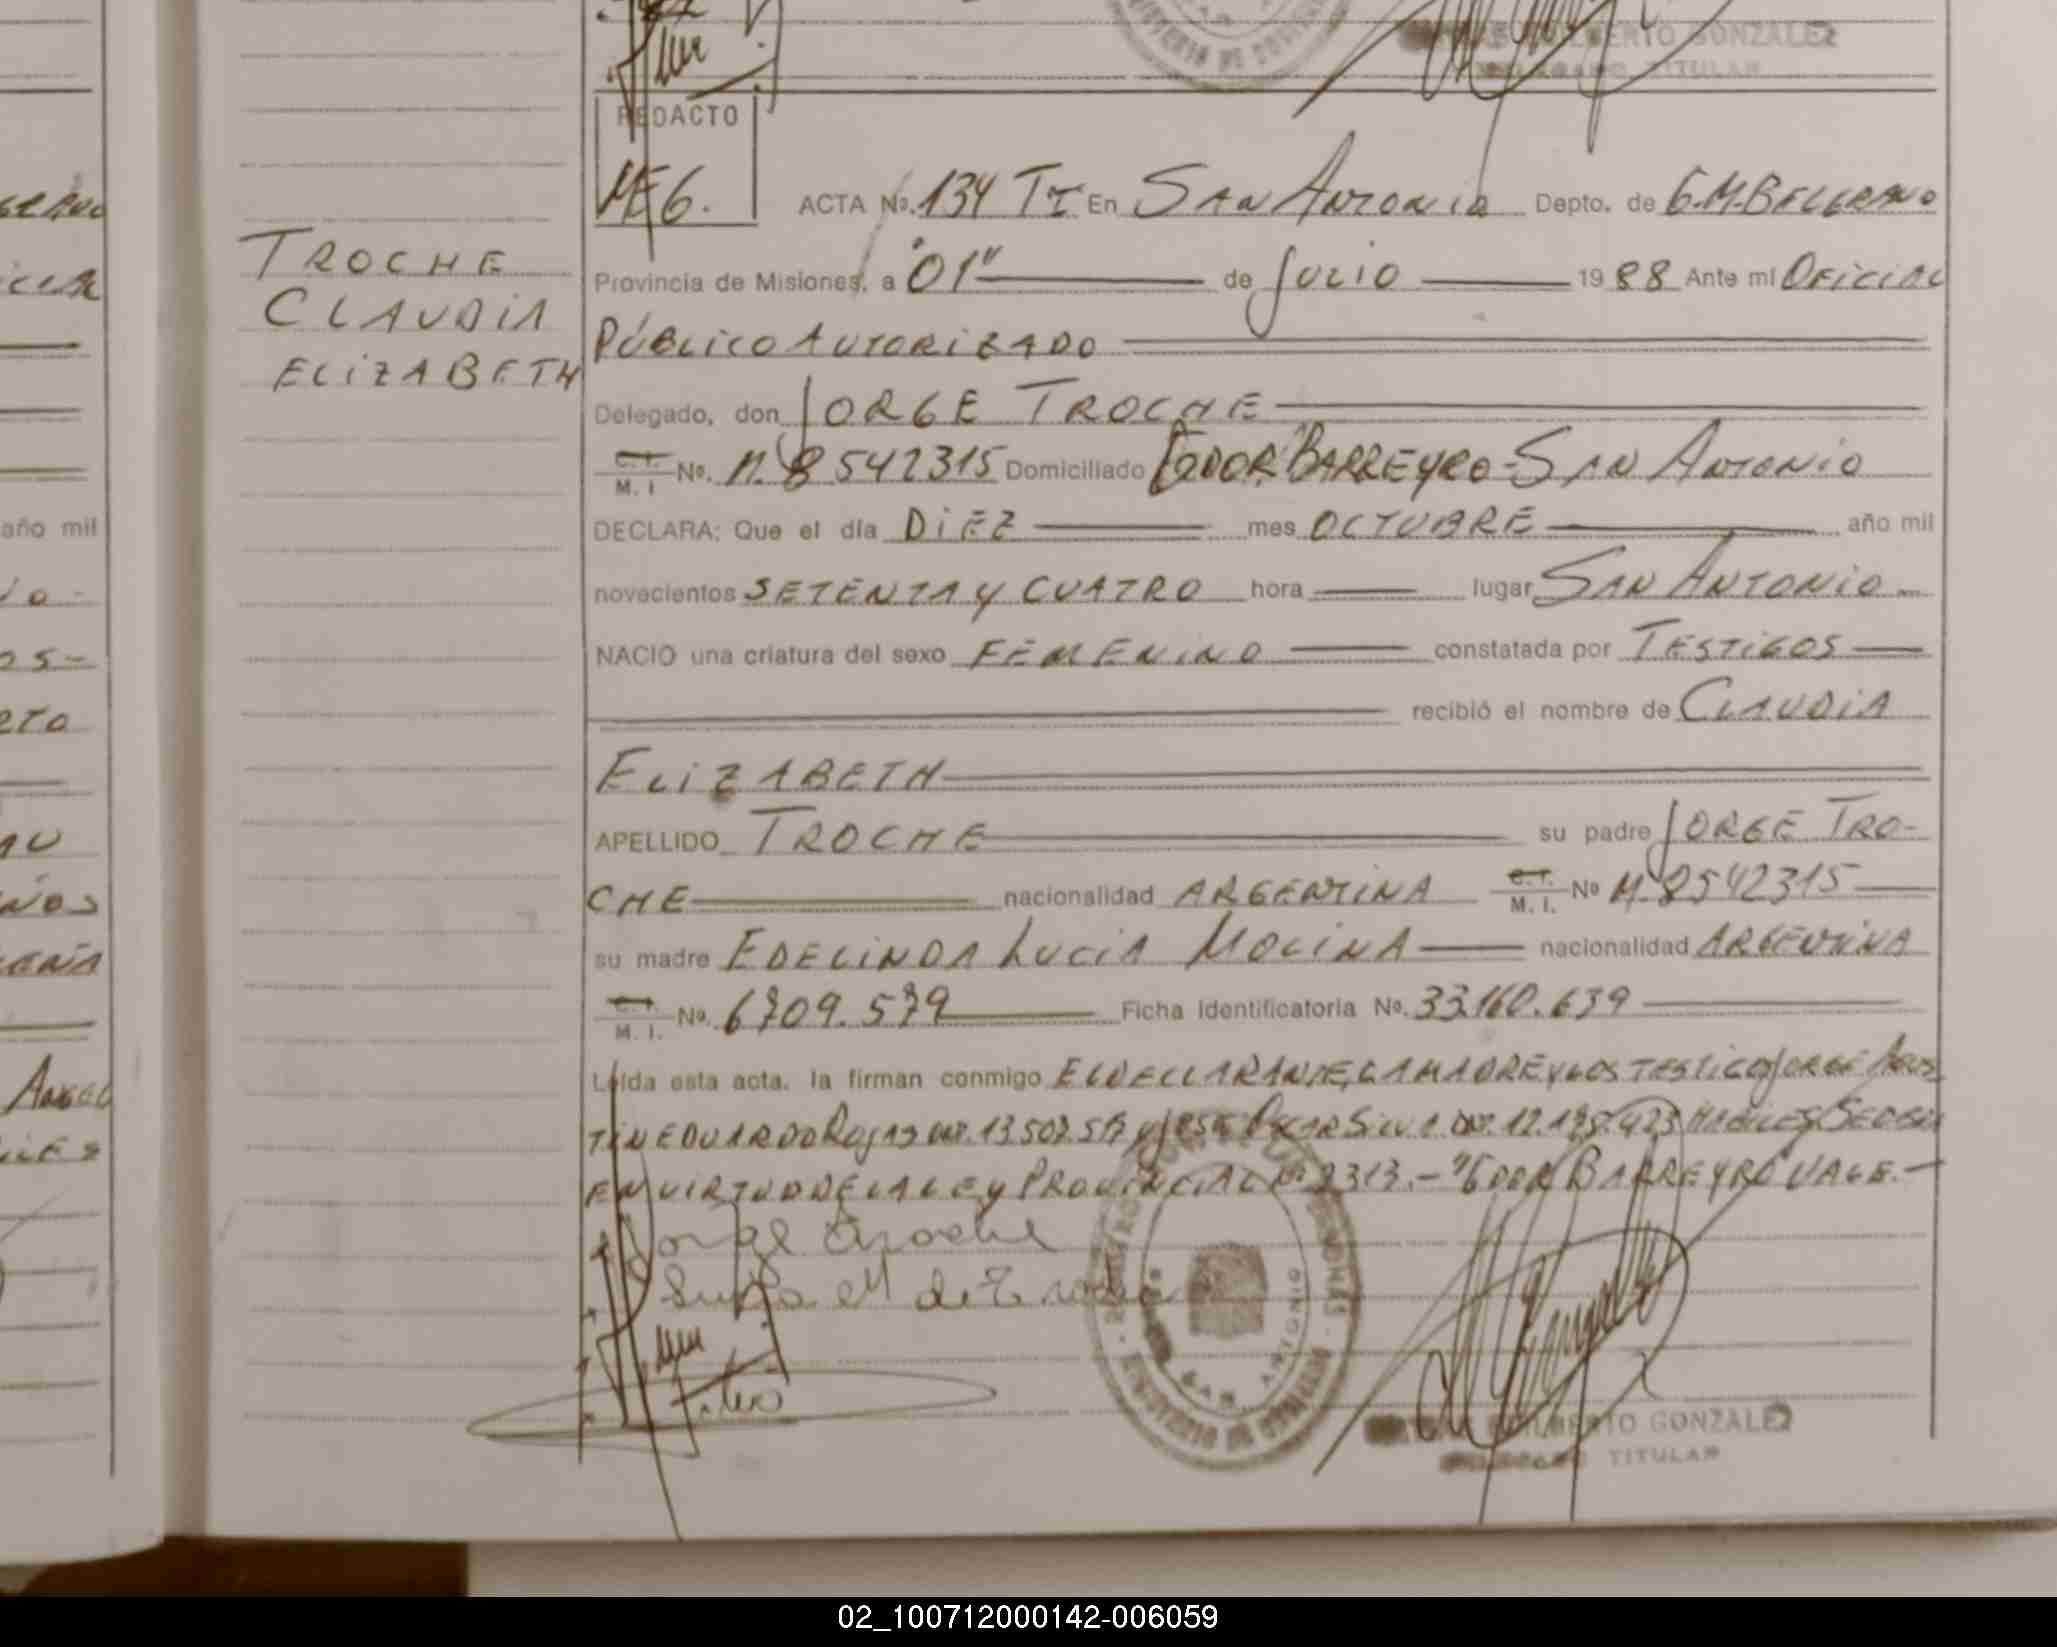 GONZALEZ
TITULAR
REDACTO
ME6.
ACTA No. 134 TI En SAN ANTONIO Depto. de G.M.BELGRANO
TROCHE
CLAUDIA
ELIZABETH
Provincia de Misiones, a "01" de JULIO 1988 Ante mí OFICIAL
PÚBLICO AUTORIZADO
Delegado, don JORGE TROCHE
C.I. M. I No. M. 8542315 Domiciliado GDOR BARREYRO-SAN ANTONIO
DECLARA: Que el día DIEZ mes OCTUBRE año mil
novecientos SETENTA Y CUATRO hora lugar SAN ANTONIO
NACIO una criatura del sexo FEMENINO constatada por TESTIGOS
recibió el nombre de CLAUDIA
ELIZABETH
APELLIDO TROCHE su padre JORGE TRO-
CHE nacionalidad ARGENTINA C.I. M. I. No M. 8542315
su madre EDELINDA LUCIA MOLINA nacionalidad ARGENTINA
C.I. M. I. No. 6709.579 Ficha Identificatoria No. 33.160.639
Leída esta acta, la firman conmigo EL DECLARANTE, LA MADRE Y LOS TESTIGOS JORGE AGUS
TIN EDUARDO ROJAS DNI. 13 507 JOSE OSCAR SILVA DNI. 12. HABILES SEDEN
EN VIRTUD DE LA LEY PROVINCIAL No. 2313.- "GDOR BARREYRO" VALE.-
Jorge Troche
Lucia M de Troche
REGISTRO DE LAS PERSONAS
SAN ANTONIO
MINISTERIO DE GOBIERNO
GILBERTO GONZALEZ
DELEGADO TITULAR
año mil
02_100712000142-006059